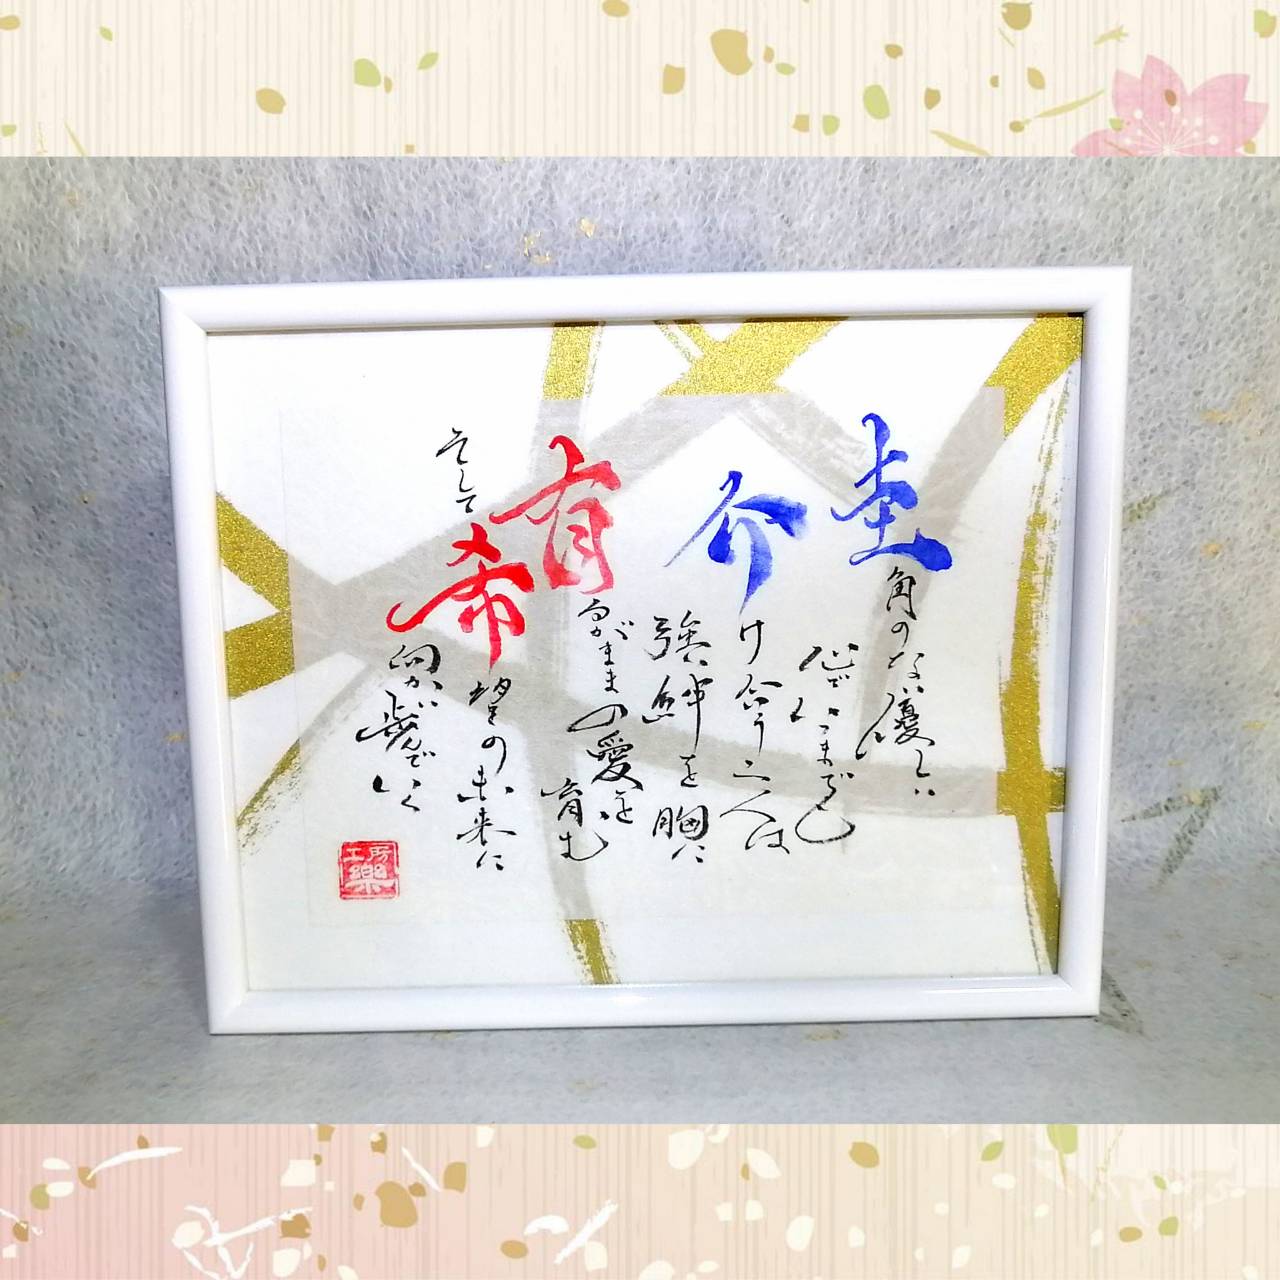 圭角のない優しい
心でいつまでも
介け合う二人は
強い絆を胸に
有るがままの愛を
育む
そして希望の未来に
向かい歩んでいく
工房
樂